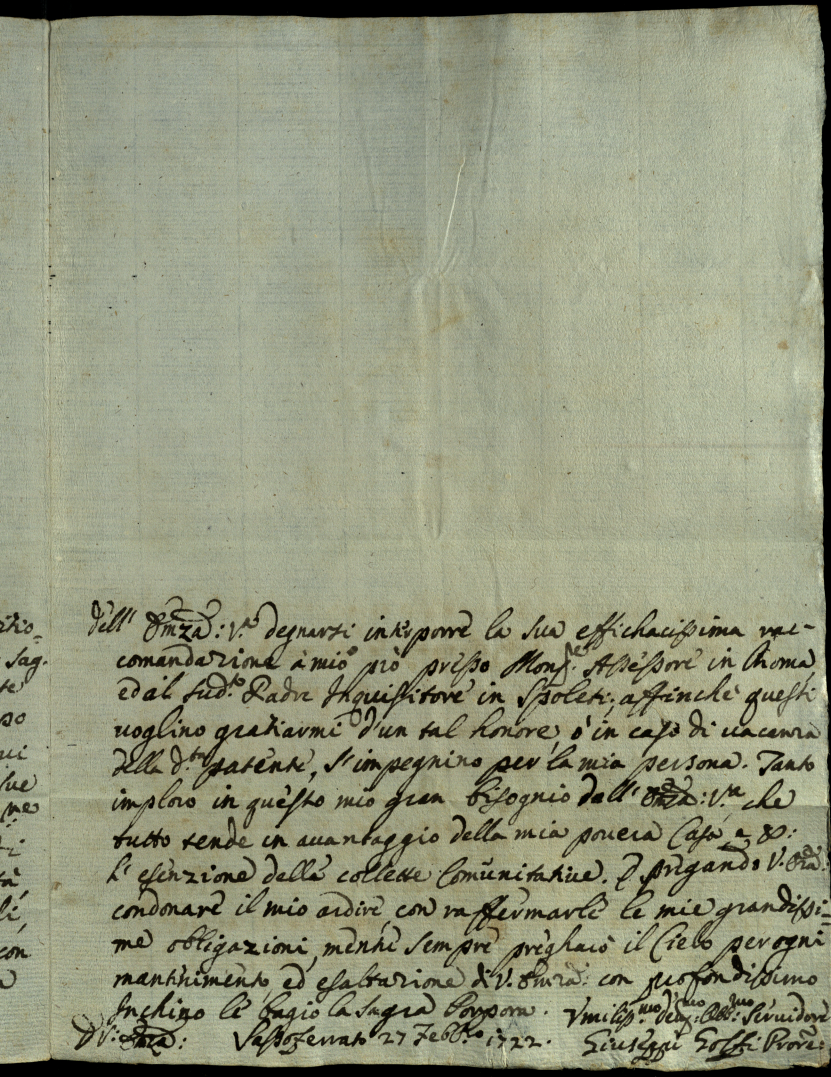 dell' Em̃za: V.ra degnarsi interporre la sua effichacissima rac-
comandazione à mio prò presso Mons.re Assessore in Roma
ed al sud.to Padre Inquisitore in Spoleti, affinche questi
voglino gratiarmi d'un tal honore, ò in caso di vacanza
della d.ta patente, s'impegnino per la mia persona. Tanto
imploro in questo mio gran bisognio dall' Em̃za: V.ra che
tutto tende in avantaggio della mia povera Casa, e
l' esenzione delle collette Comunitative. E pregando V. Em̃za:
condonare il mio ardire, con raffermarle le mie grandissi=
me obligazioni, mentre sempre pregharò il Cielo per ogni
mantenimento, ed esaltazione di V. Em̃za: con profondissimo
Inchino le bagio la Sagra Porpora.
Umiliss.mo Dev.mo Obb.mo Servidore
D V: Em̃za: Sassoferrato 27 Febb.ro 1722.
Giuseppe